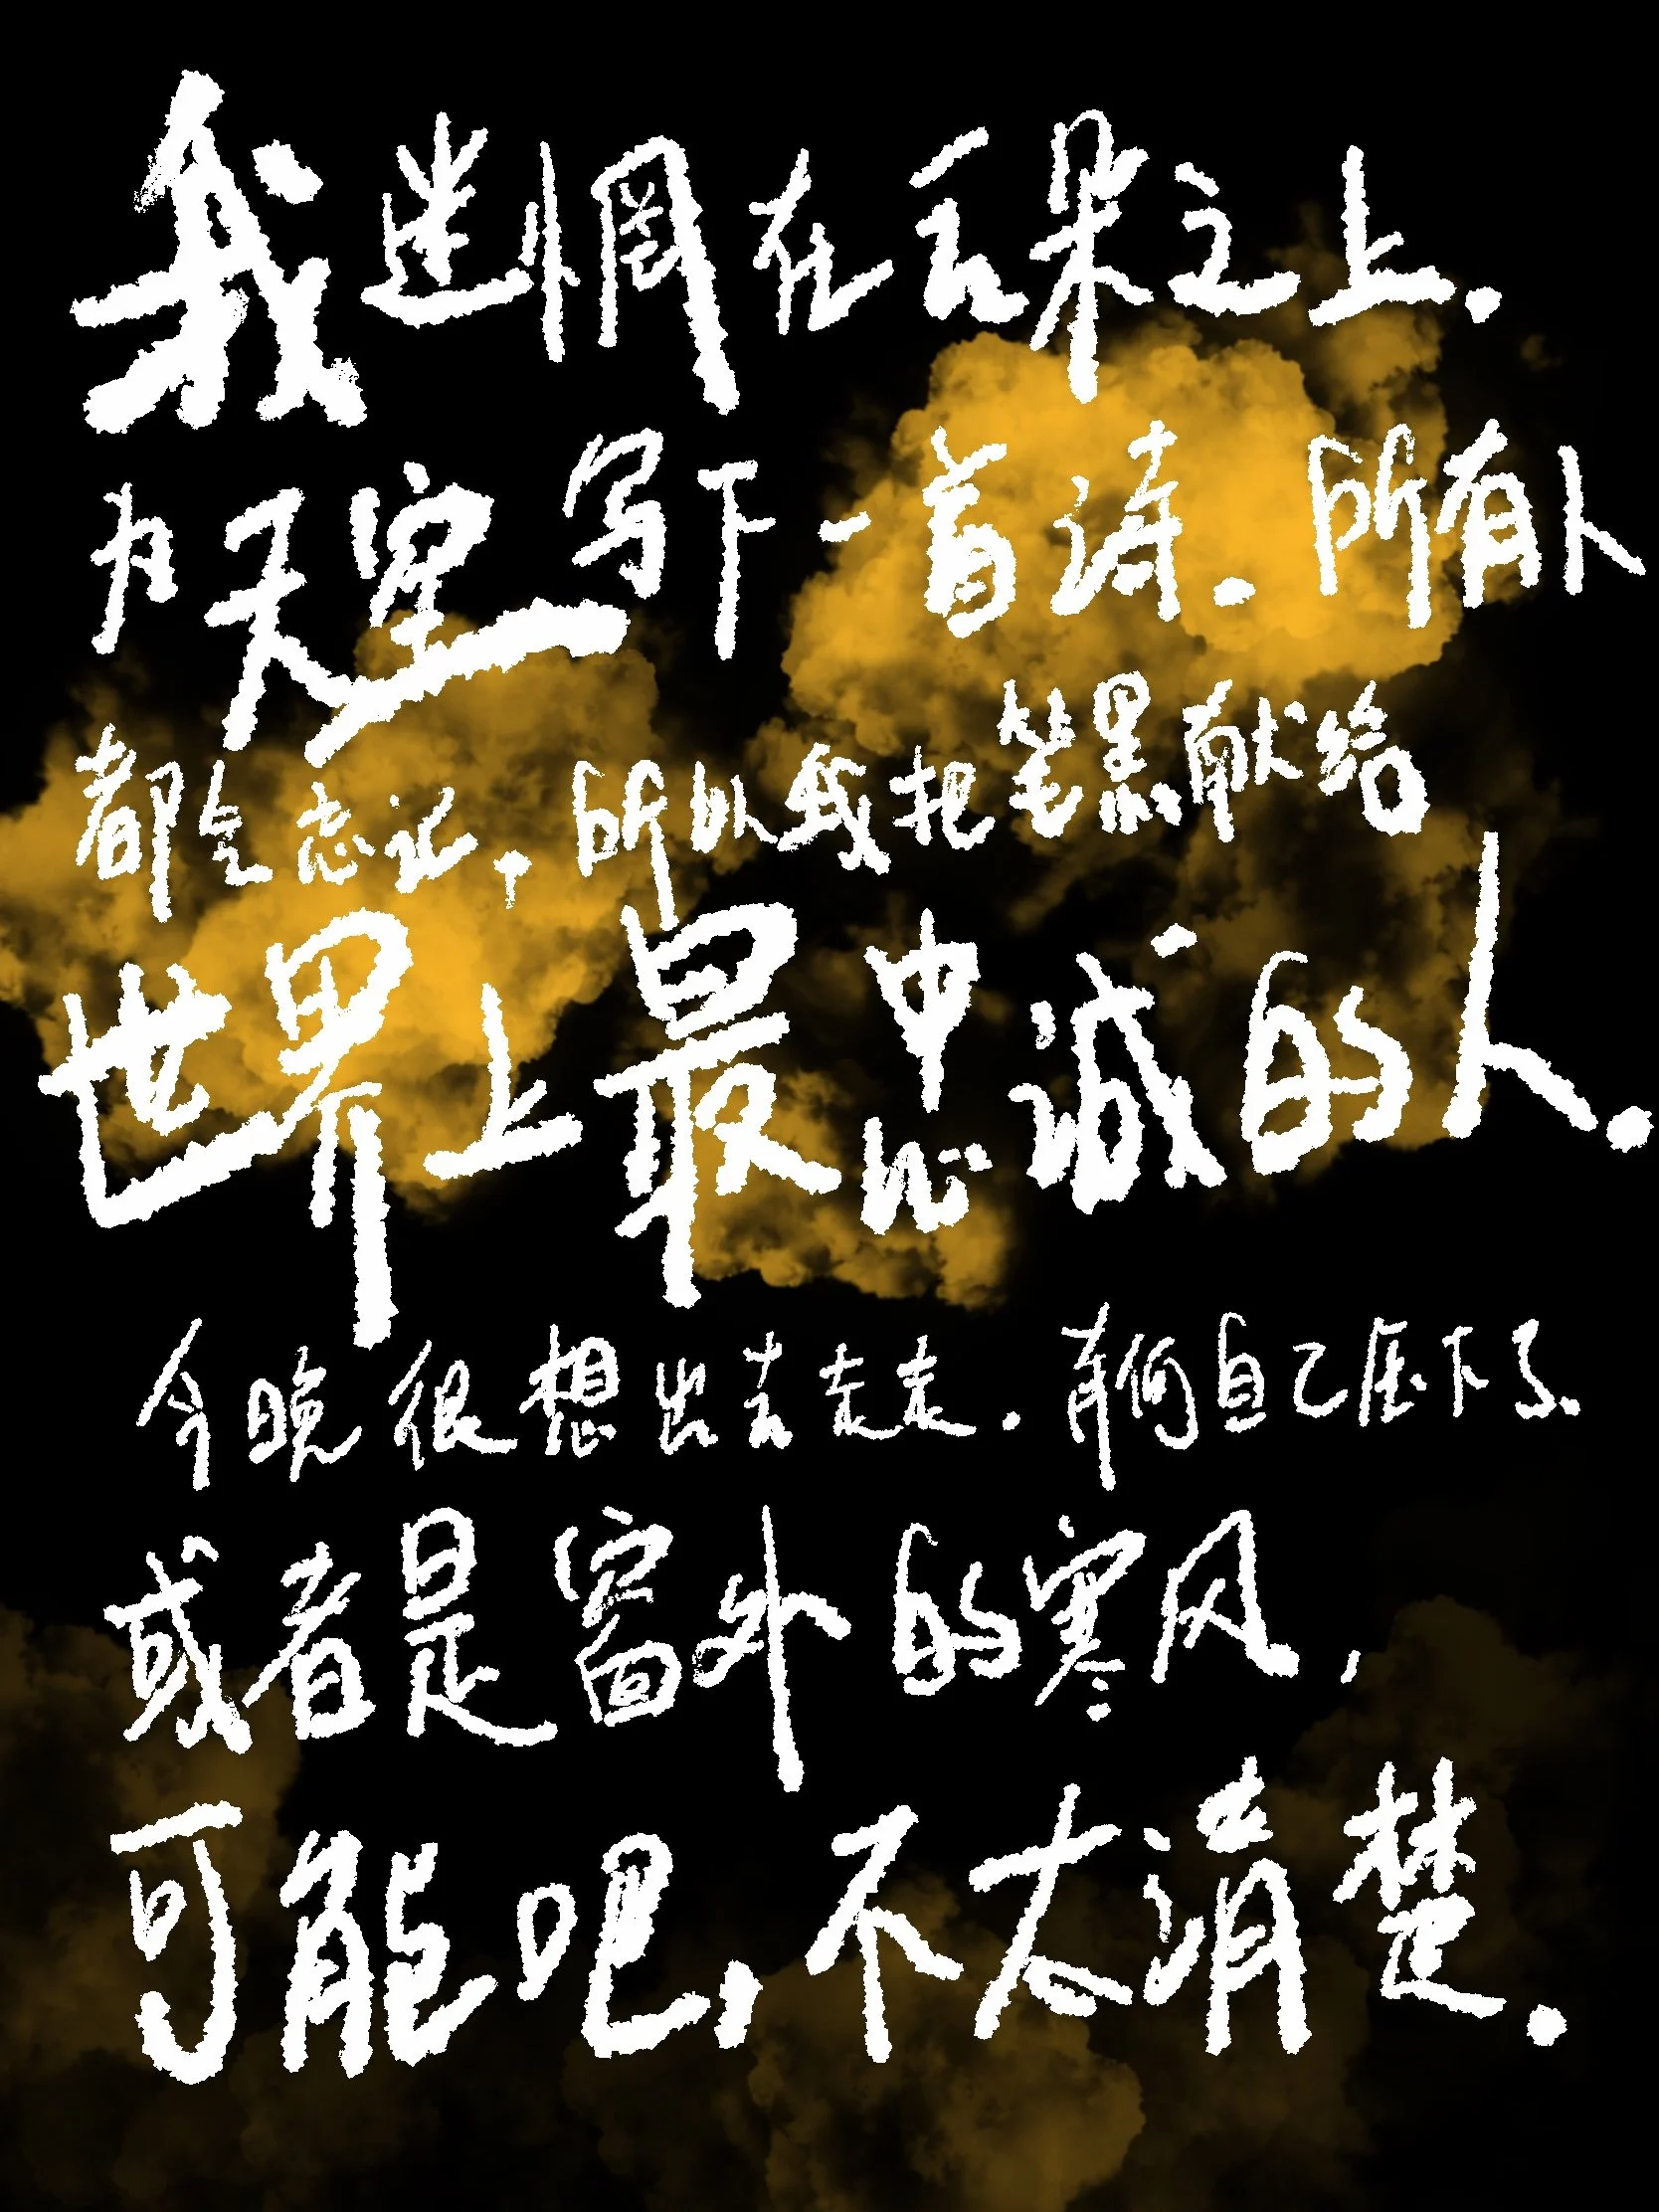 我迷惘在云朵之上.
为天空写下一首诗.所有人
都会忘记,所以我把笔墨献给
世界上最忠诚的人.
今晚很想出去走走.奈何自己压下了.
或者是窗外的寒风,
可能吧,不太清楚.